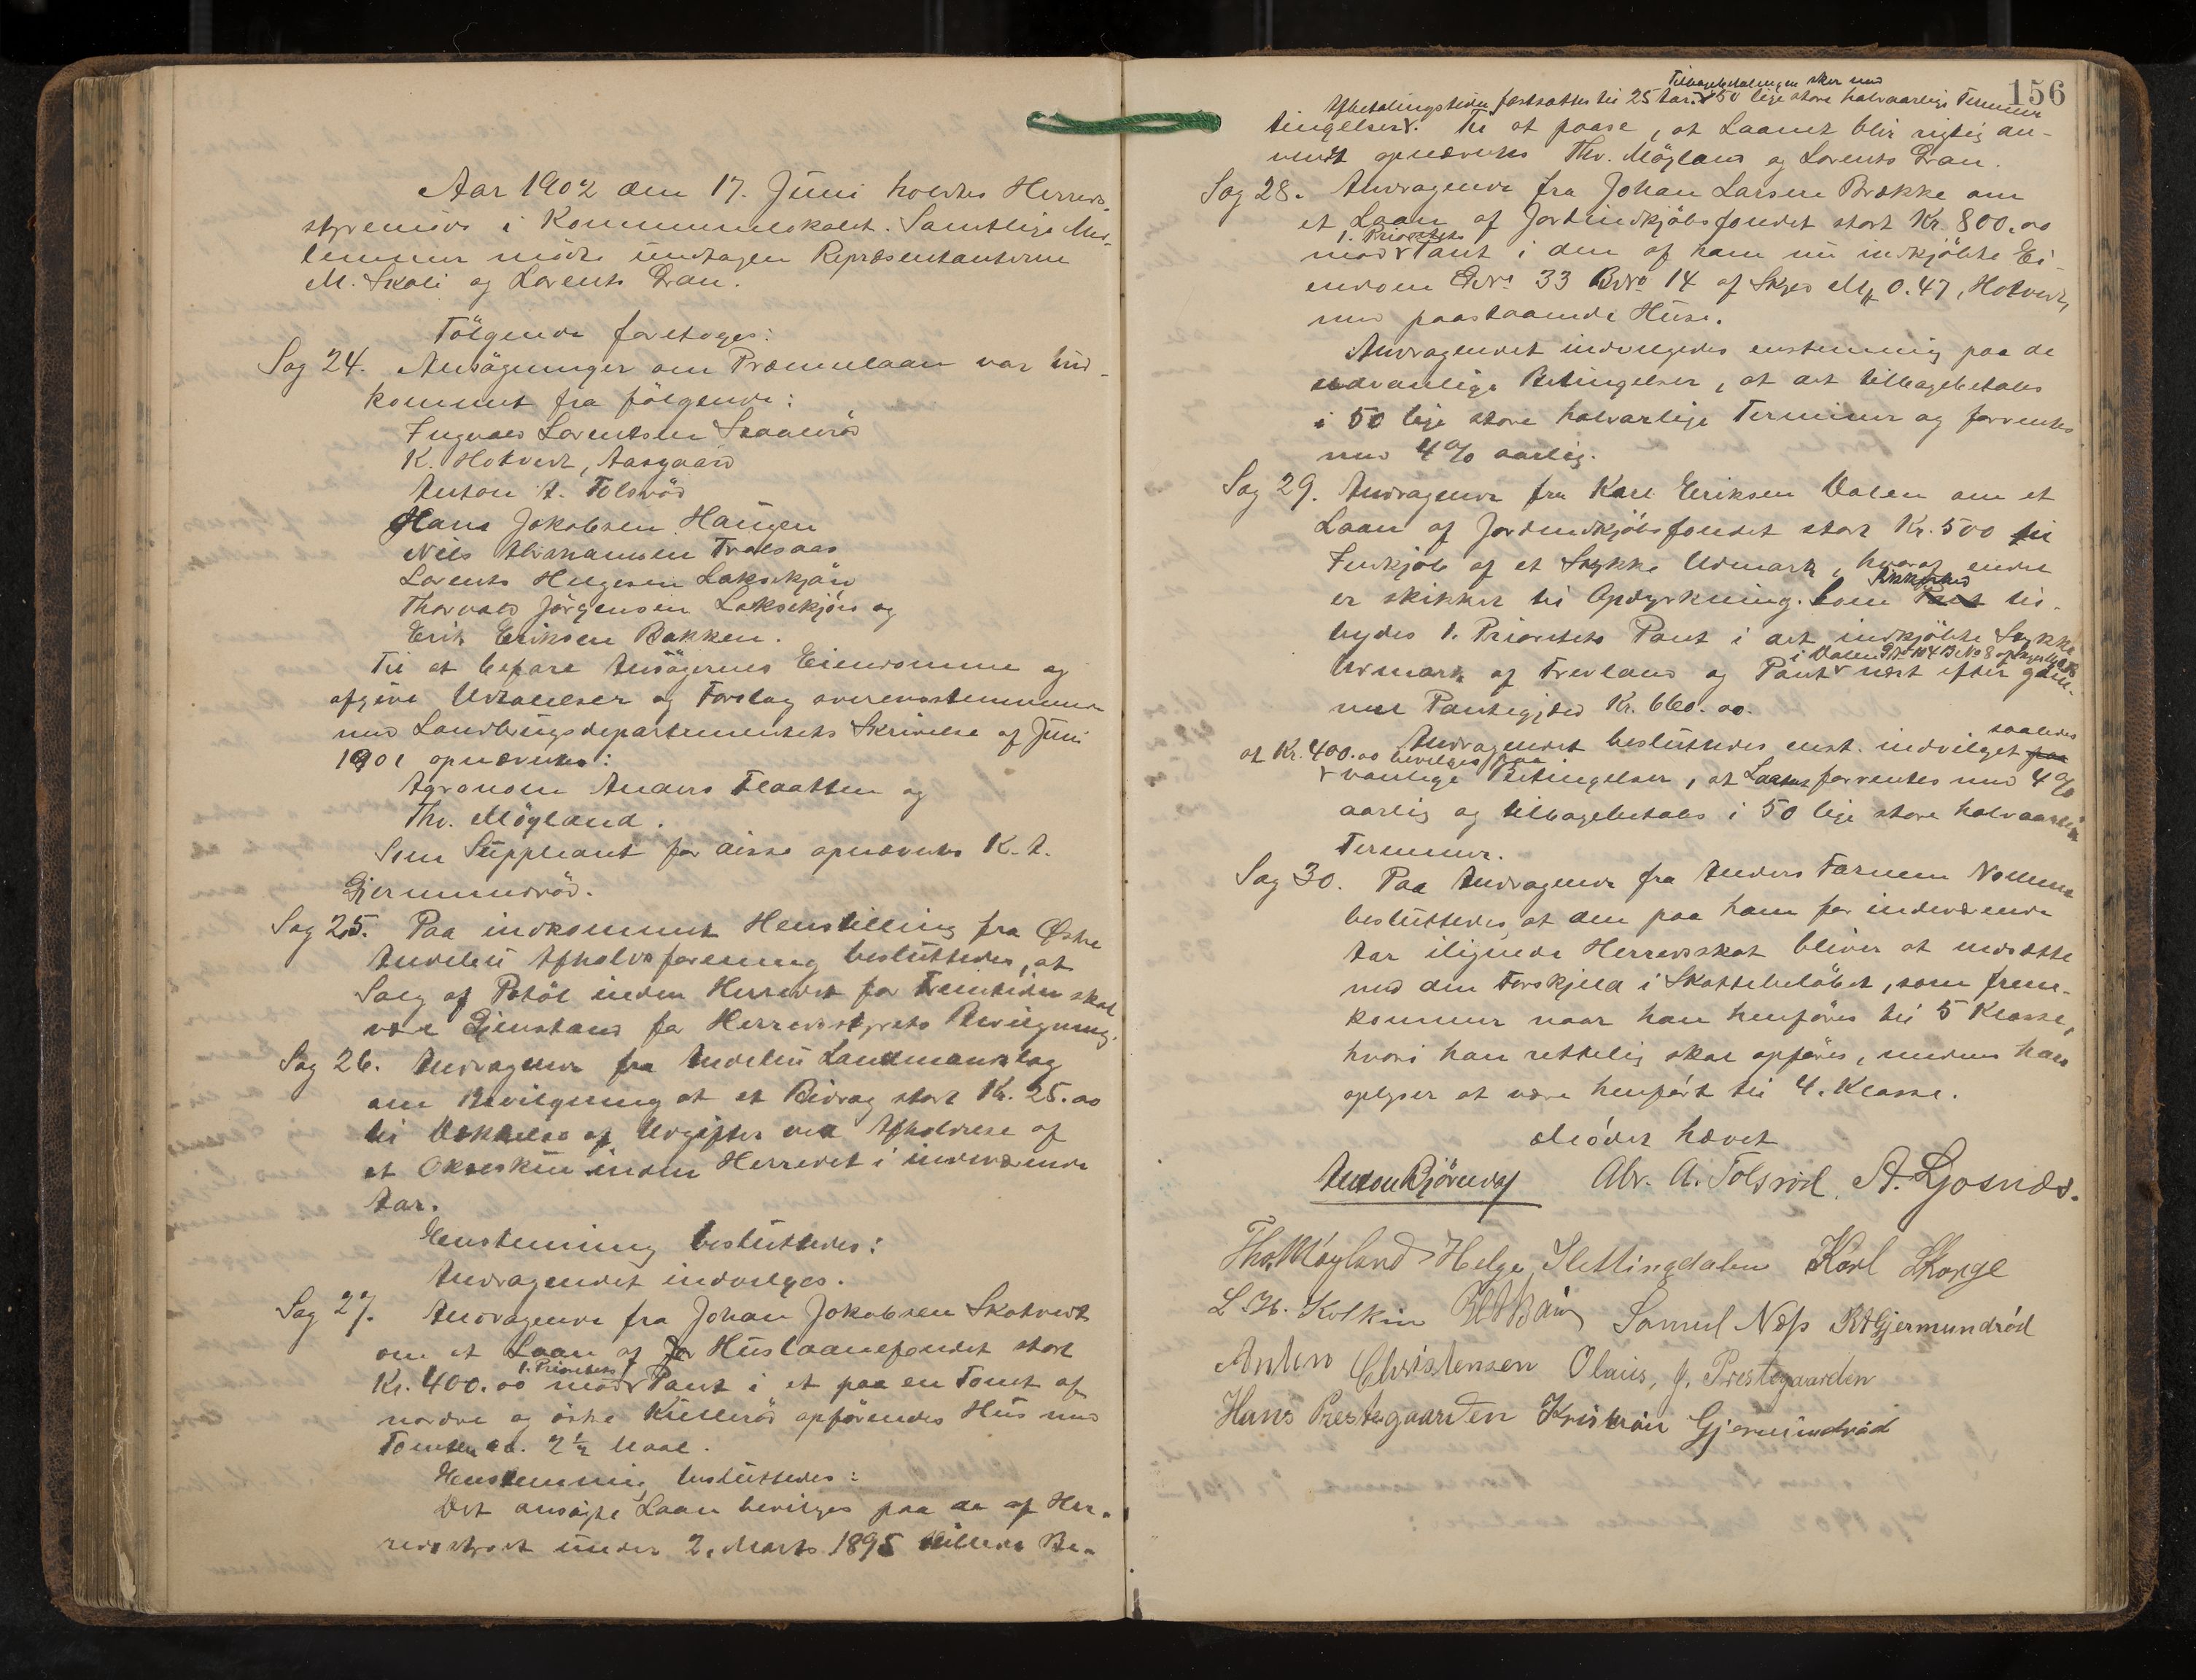 Aar 1902 den 17. Juni holdtes Herreds-
styremöde i Kommunelokalet. Samtlige Med-
lemmer mödte undtagen Repræsentanterne
M. Skali og Lorents Dran.
Fölgende foretoges:
Sag 24. Ansögninger om Præmielaan var ind-
kommet fra fölgende:
Ingvald Lorentsen Skaaleröd
K. Hotvedt, Aasgaard
Anton A. Tolsröd
Hans Jakobsen Haugen
Nils Abrahamsen Trolsaas
Lorents Helgesen Laksekjön
Thorvald Jörgensen Laksekjön og
Erik Eriksen Bakken.
Til at befare Ansögernes Eiendomme og
afgive Udtalelser og Forslag overensstemmende
med Landbrugsdepartementets Skrivelse af Juni
1901 opnævntes:
Agronom Anders Flaatten og
Thv. Möyland.
Som Suppleant for disse opnævntes K. A.
Gjermundröd.
Sag 25. Paa indkommet Henstilling fra Østre
Andebu Afholdsforening besluttedes, at
Salg af Potöl inden Herredet for Fremtiden skal
være Gjenstand for Herredsstyrets Bevilgning.
Sag 26. Andragende fra Andebu Landmandslag
om Bevilgning at et Bidrag stort Kr. 25.00
til Dækkelse af Udgifter ved Afholdelse af
et Okseskue inden Herredet i indeværende
Aar.
Enstemmig besluttedes:
Andragendet indvilges.
Sag 27. Andragende fra Johan Jakobsen Skotvedt
om et Laan af Huslaanefondet stort
Kr. 400.00 mod 1. Prioritets Pant i et paa en Tomt af
nordre og östre Kulleröd opförendes Hus med
Tomten cd. 2½ Maal.
Enstemmig besluttedes:
Det ansögte Laan bevilges paa de af Her-
redsstyret under 2. Marts 1895 stillede Be-
156
Afbetalingstiden fastsættes til 25 Aar. Tilbagebetalingen sker med 50 lige store halvaarlige Terminer
tingelser. Til at paase, at Laanet blir rigtig an-
vendt opnævntes Thv. Möyland og Lorents Dran.
Sag 28. Andragende fra Johan Larsen Brække om
et Laan af Jordindkjöbsfondet stort Kr. 800.00
mod 1. Prioritets Pant i den af ham nu indkjöbte Ei-
endom GNo 33 BNo 14 af Skyld Mk 0.47, Hotvedt,
med paastaaende Huse.
Andragendet indvilgedes enstemmig paa de
sedvanlige Betingelser, at det tilbagebetales
i 50 lige store halvarlige Terminer og forrentes
med 4% aarlig.
Sag 29. Andragende fra Karl Eriksen Dalen om et
Laan af Jordindkjöbsfondet stort Kr. 500 til
Indkjöb af et Stykke Udmark, hvoraf endel
er skikket til Opdyrkning. Som Sikkerhed til-
bydes 1. Prioritets Pant i det indkjöbte Stykke
Udmark af Trevland og Pant i Dalen GNo 104 BNo 8 næst efter gam-
mel Pantegjæld Kr. 660.00.
Andragendet besluttedes enst. indvilget saaledes
at Kr. 400.00 bevilges paa
vanlige Betingelser, at Laanet forrentes med 4%
aarlig og tilbagebetales i 50 lige store halvaarlige
Terminer.
Sag 30. Paa Andragende fra Anders Farmen
besluttedes, at den paa ham for indeværende
Aar ilignede Herredsskat bliver at nedsætte
med den Forskjel i Skattebelöbet, som frem-
kommer naar han henföres til 5 Klasse,
hvori han rettelig skal opföres, medens han
oplyser at være henfört til 4. Klasse.
Mödet hævet
Anton Björndal Abr. A. Tolsröd. A. Gjosnæs.
Thv. Möyland Helge Slettingdalen Karl Skorge
L. H. Kolkin Samuel Næss K A Gjermundröd
Anton Christensen Olaus, J. Prestegaarden
Hans Prestegaarden Kristian Gjermundröd